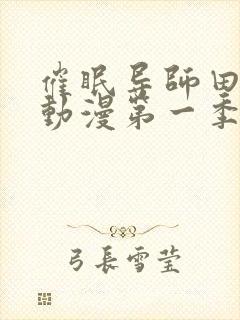 催眠导師田
動漫第一季
弓長雪莹